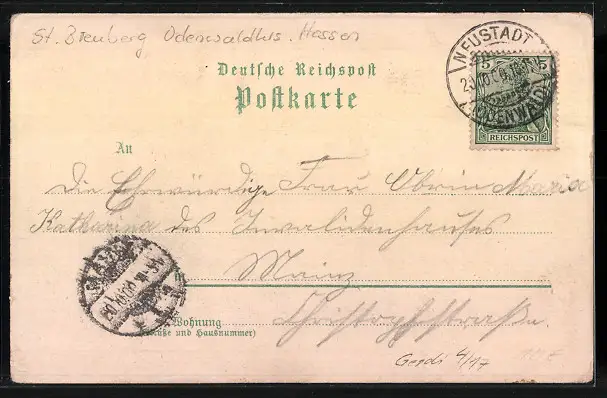 St. Breuberg Odenwaldkrs. Hessen
Deutsche Reichspost
Postkarte
NEUSTADT
(ODENWALD)
5 5
REICHSPOST
An
Die Ehrwürdige Frau Oberin Maria
Katharina des Invalidenhauses
in Mainz
Christophstraße.
Wohnung
(Straße und Hausnummer)